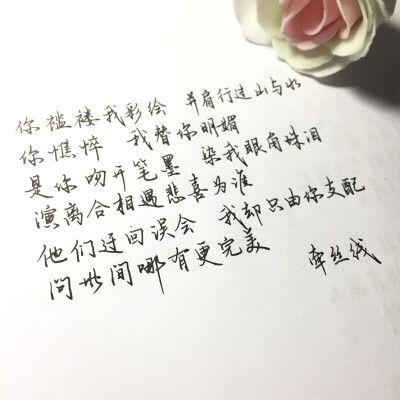 你褴褛我彩绘 并肩行过山与水
你憔悴 我替你明媚
是你吻开笔墨 染我眼角珠泪
演离合相遇悲喜为谁
他们迂回误会 我却只由你支配
问世间哪有更完美
牵丝线